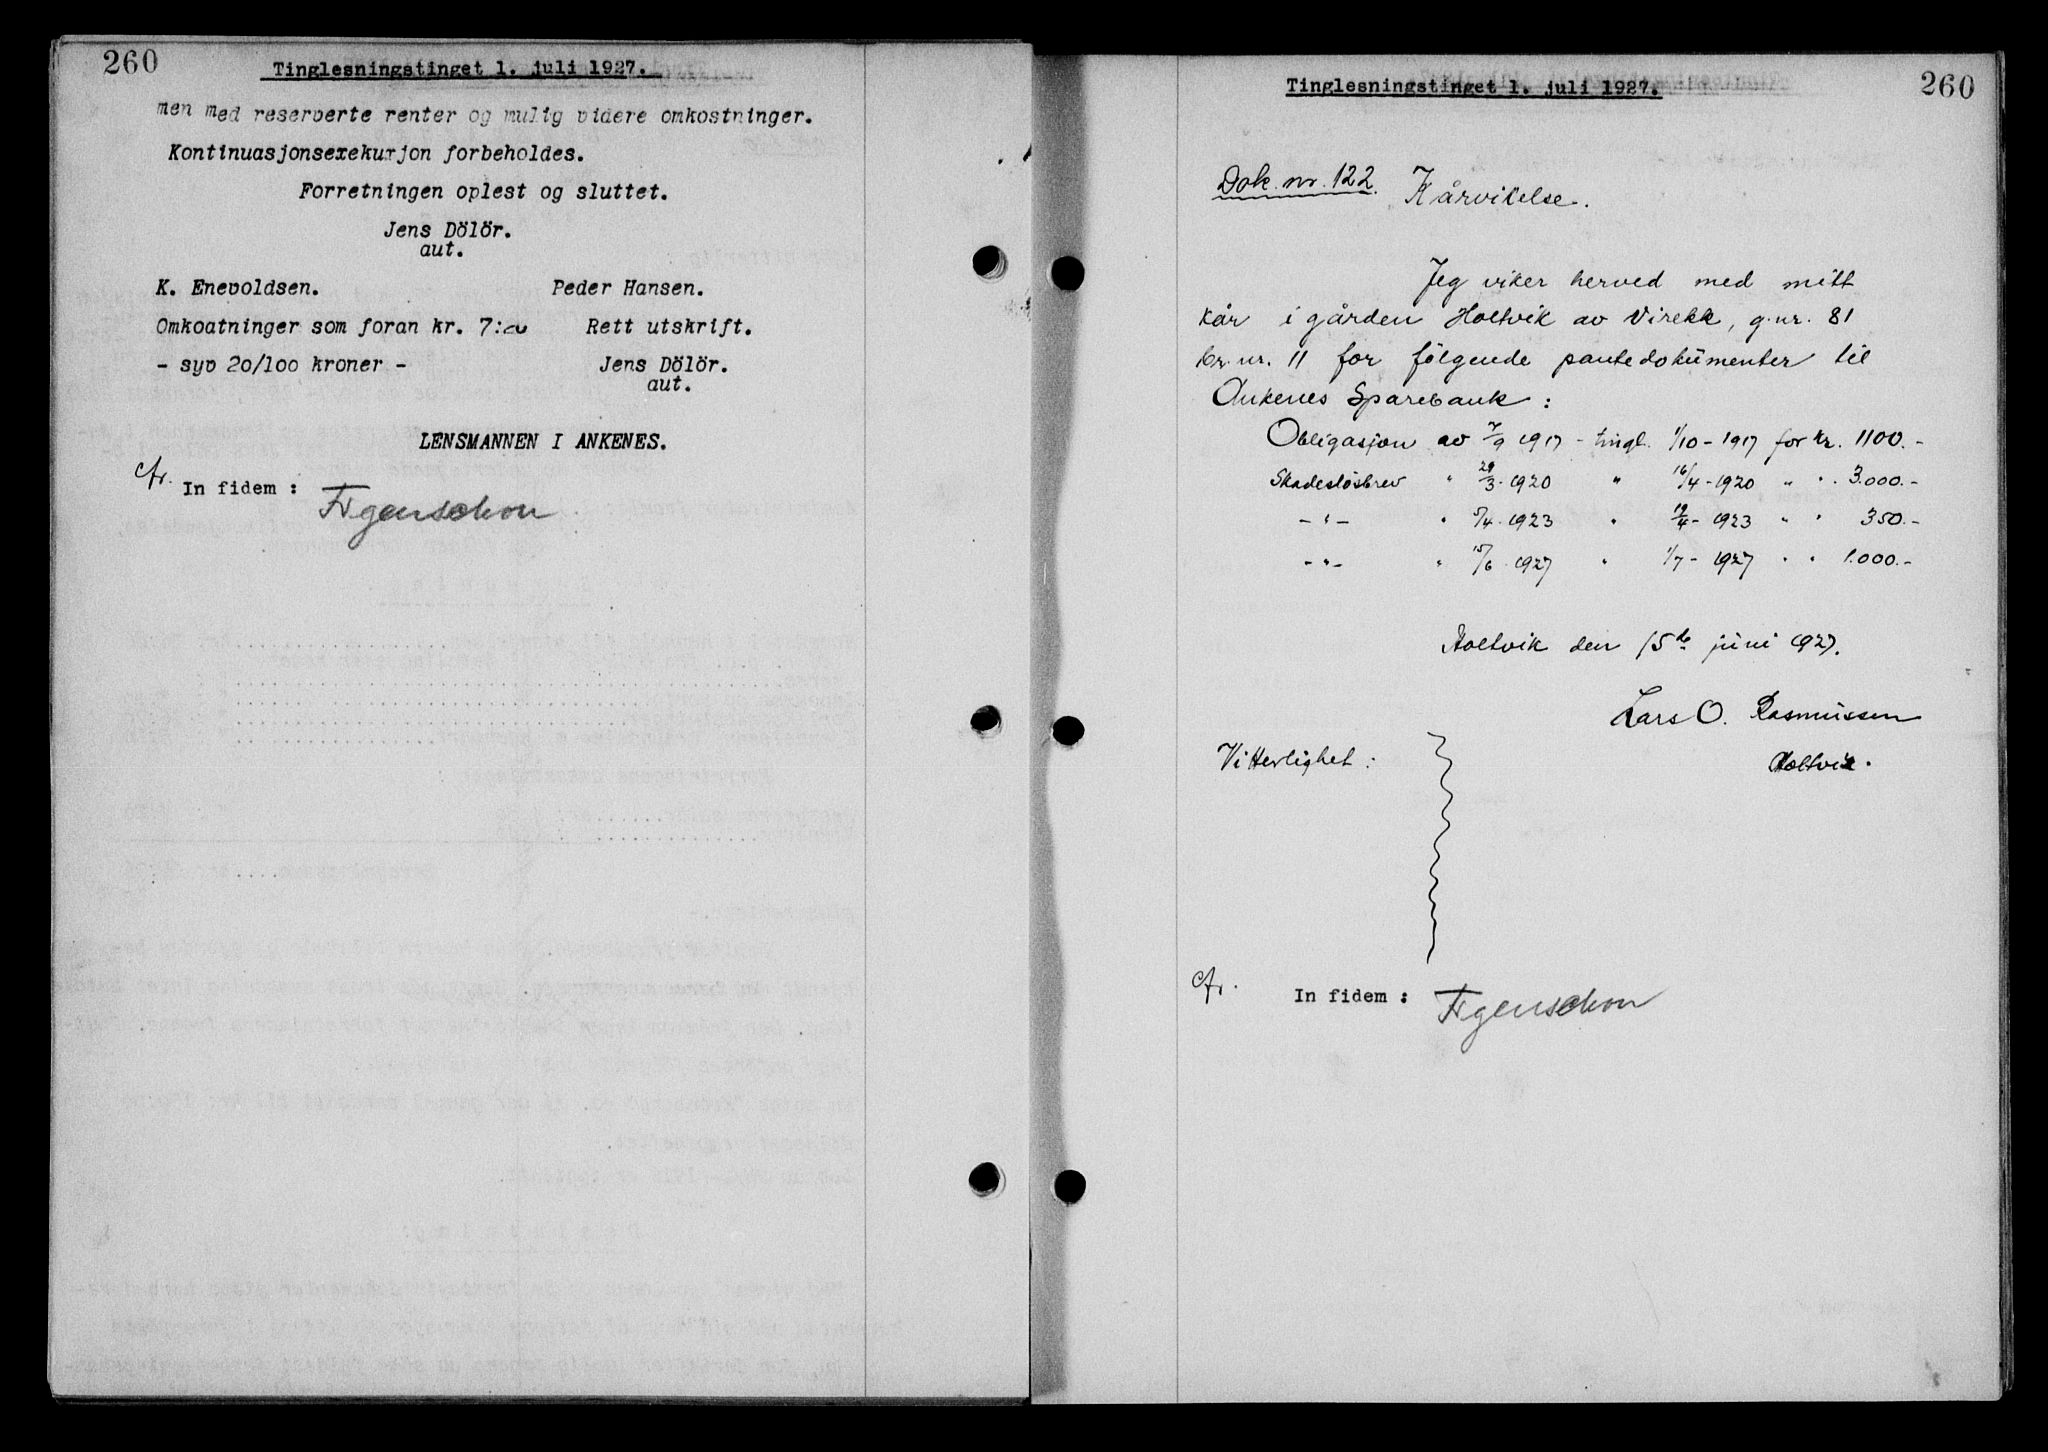 260
Tinglesningstinget 1. juli 1927.
men med reserverte renter og mulig videre omkostninger.
Kontinuasjonsexekuxjon forbeholdes.
Forretningen oplest og sluttet.
Jens Dölör.
aut.
K. Enevoldsen. Peder Hansen.
Omkoatninger som foran kr. 7:20 Rett utskrift.
- syv 20/100 kroner - Jens Dölör.
aut.
LENSMANNEN I ANKENES.
In fidem :
260
Tinglesningstinget 1. juli 1927.
Dok. nr. 122. Kårvikelse.
Jeg viker herved med mitt
kår i gården Holtvik av Virekk, g.nr. 81
br.nr. 11 for følgende pantedokumenter til
Ankenes Sparebank :
Obligasjon av 7/9 1917 - tingl. 1/10 - 1917 for kr. 1100.-
Skadesløsbrev " 29/3. 1920 " 16/4 - 1920 " " 3.000.-
- " - " 5/4. 1923 " 19/4 - 1923 " " 350.-
- " - " 15/6. 1927 " 1/7 - 1927 " " 1.000.-
Holtvik den 15de juni 1927.
Lars O. Rasmussen
Vitterlighet : Holtvik.
In fidem :